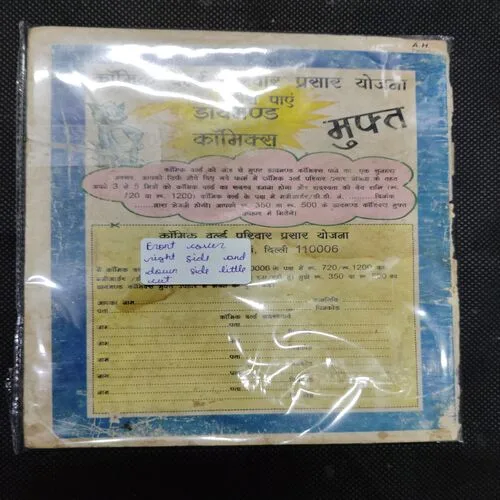 A.H.
कॉमिक वर्ल्ड परिवार प्रसार योजना
पाएं
डायमण्ड
कॉमिक्स
मुफ्त
कॉमिक वर्ल्ड की ओर से मुफ्त डायमण्ड कॉमिक्स पाने का एक सुनहरा
अवसर, आपको सिर्फ नीचे दिए गये फार्म में कॉमिक वर्ल्ड परिवार प्रसार योजना के तहत
अपने 3 से 5 मित्रों को कॉमिक वर्ल्ड का सदस्य बनाना होगा और सदस्यता की राशि (रू.
720 या रू. 1200) कॉमिक वर्ल्ड के पक्ष में मनीआर्डर/डी.डी. नं. दिनांक
द्वारा भेजनी होगी। आपको रू. 350 या रू. 500 के डायमण्ड कॉमिक्स मुफ्त
उपहार में मिलेंगे।
कॉमिक वर्ल्ड परिवार प्रसार योजना
दिल्ली 110006
Front cover
right side and
down side little
cut
मैं कॉमिक 0006 के पक्ष में रू. 720/रू. 1200 का
मनीआर्डर/ मुझे रू. 350 या रू. 500 का
डायमण्ड कॉमिक्स
आपका नाम
पता पिनकोड
कॉमिक वर्ल्ड सदस्यगण
नाम पता
नाम पता
नाम पता
नाम पता
नाम पता